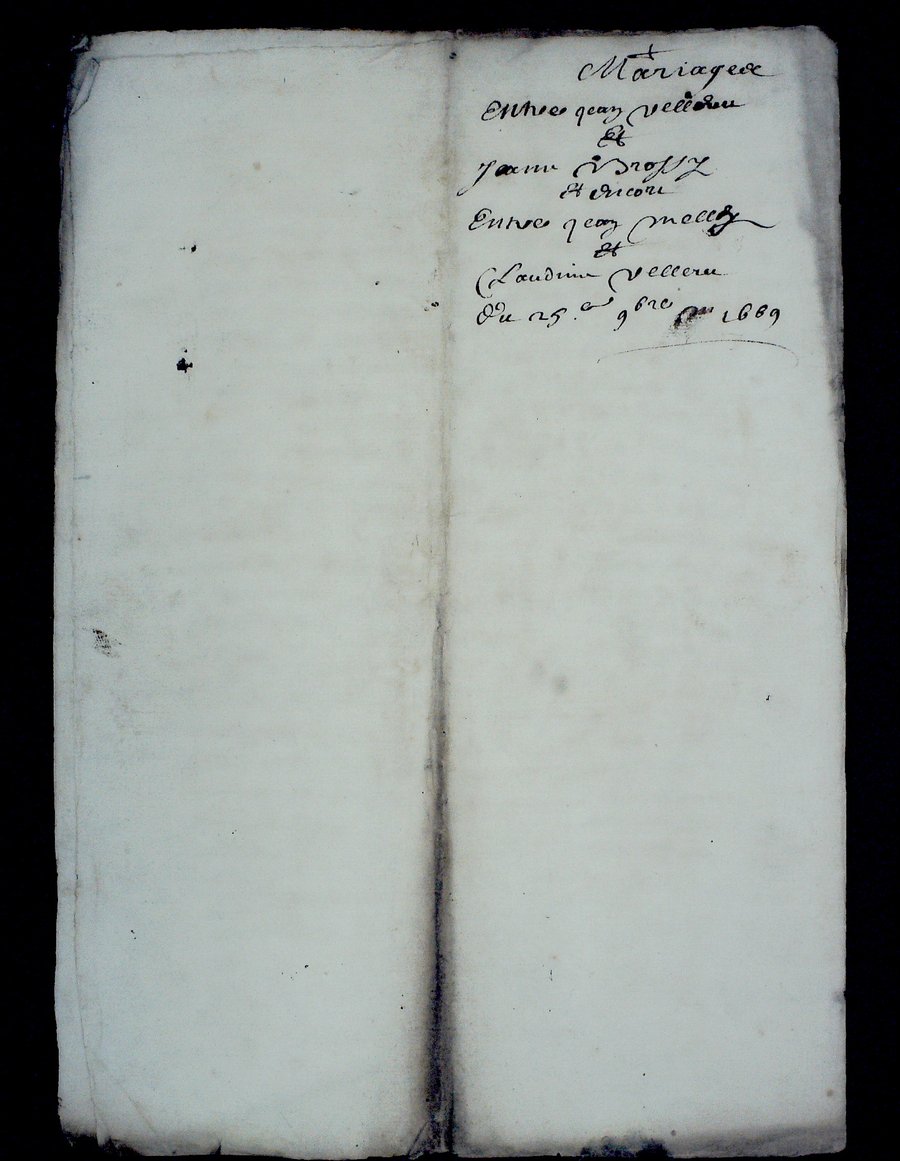 Mariage
Entre jean velleru
Et
Jeanne Brossy
Et encore
Entre jean melly
Et
Claudine velleru
Du 25.e 9bre 1669